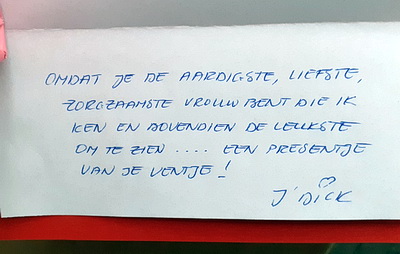 OMDAT JE DE AARDIGSTE, LIEFSTE,
ZORGZAAMSTE VROUW BENT DIE IK
KEN EN BOVENDIEN DE LEUKSTE
OM TE ZIEN .... EEN PRESENTJE
VAN JE VENTJE!
J' DICK